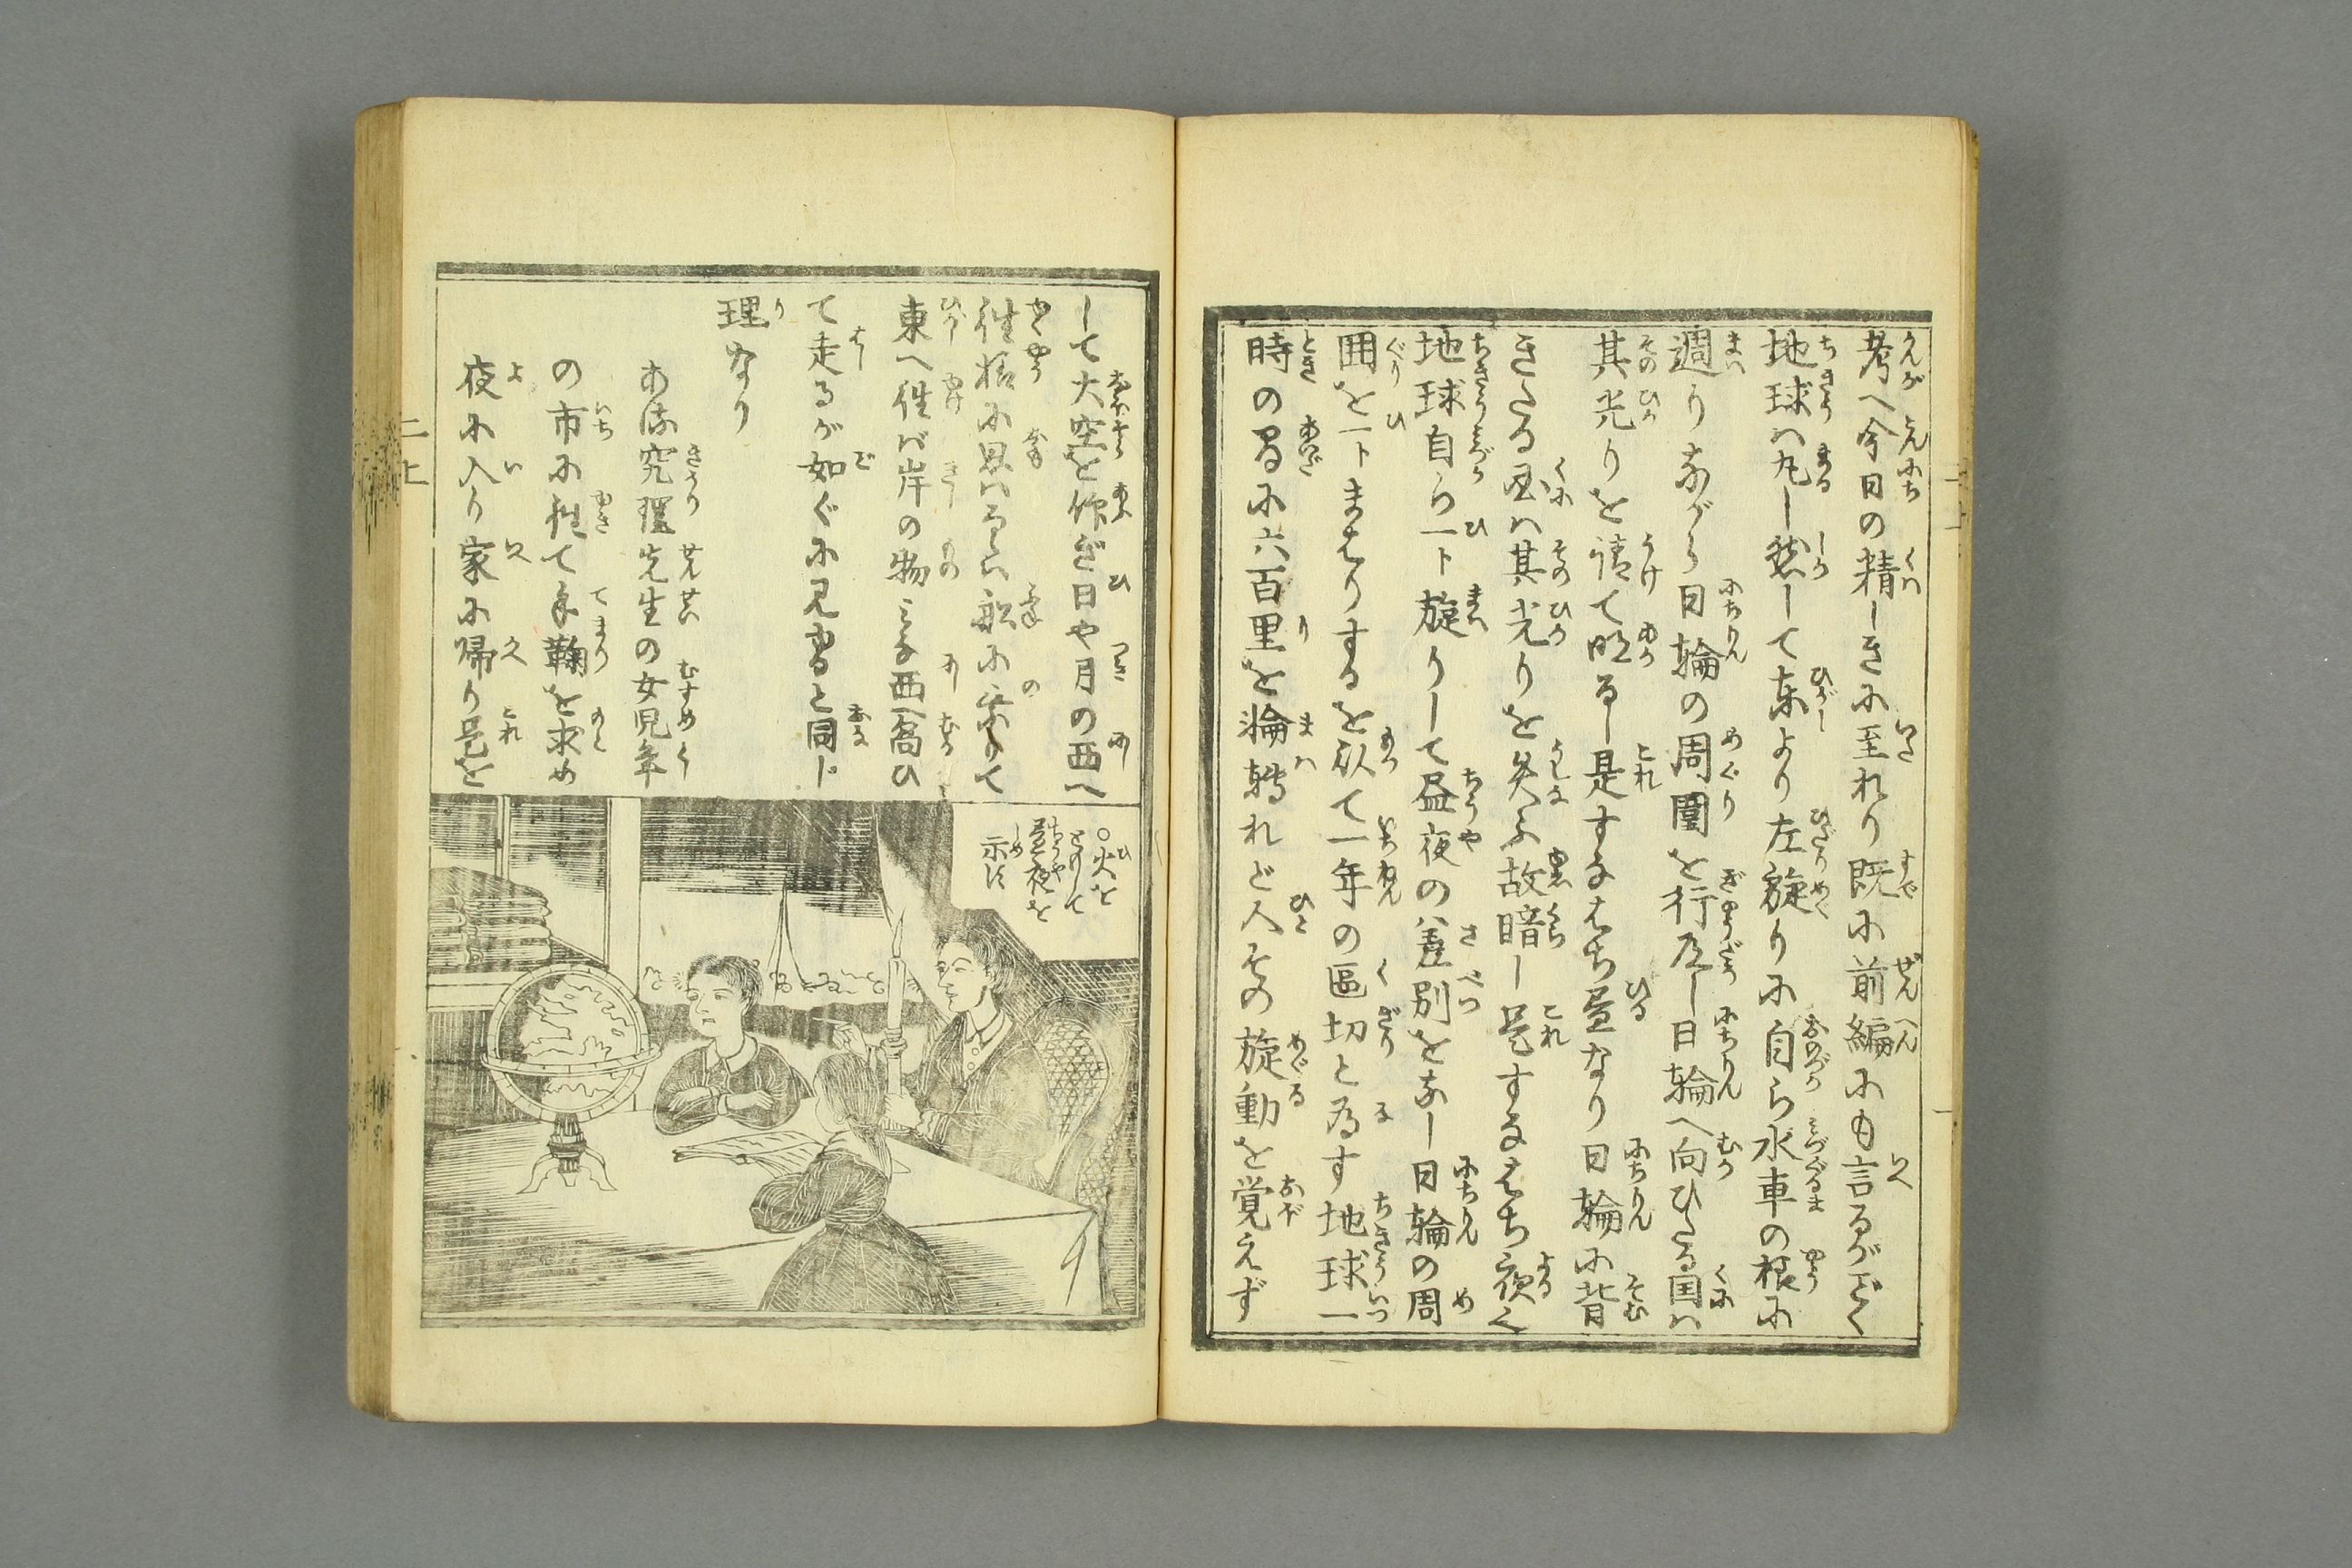 考へ今日の精しきに至れり既に前編にも言るがごく
地球ハ丸し然して東より左旋りに自ら水車の様に
週りながら日輪の周圍を行度し日輪へ向ひたる国ハ
其光りを請て明るし是すなはち昼なり日輪に背
きたる国ハ其光りを失ふ故暗し是すなはち夜く
地球自ら一ト旋りして昼夜の差別をなし日輪の周
囲を一トまはりするを以て一年の區切と為す地球一
時の間に六百里を輪轉れど人其の旋動を覚えず
して大空を仰ぎ日や月の西へ
往様に思ハるハ船に乗りて
東へ往バ岸の物ミな西へ向ひ
て走るが如くに見ゆると同じ
理なり
ある究理先生の女児年
の市に往て手鞠を求め
夜に入り家に帰り是を
○火を
ともして
昼夜を
示す